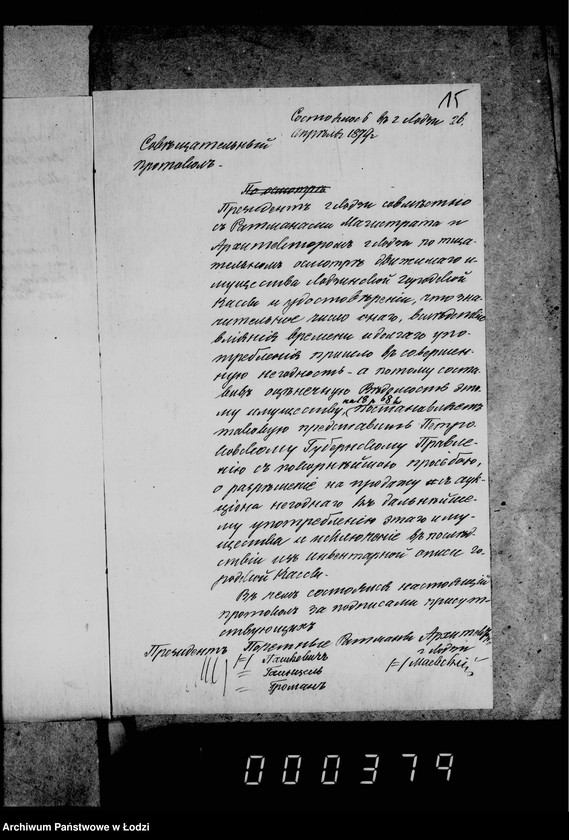 15
Состоялось въ г Лодзи 26
Апрѣля 1877г
Совѣщательный
Протоколъ.
По осмотрѣ
Президентъ г Лодзи совмѣстно
съ Ратманами Магистрата и
Архитекторомъ г Лодзи по тща-
тельномъ осмотрѣ движимаго и-
мущества Лодзинской Городской
Кассы и удостовѣреніи, что зна-
чительное число онаго, вслѣдствіе
вліянія времени и долгаго упо-
требленія пришло въ совершен-
ную негодность - а потому соста-
вивъ оцѣночную Вѣдомость это-
му имуществу, на 18 р 68 к постановляетъ
таковую представить Петро-
ковскому Губернскому Правле-
нію съ покорнѣйшею просьбою,
о разрѣшеніе на продажу съ аук-
ціона негоднаго къ дальнѣйше-
му употребленію этаго иму-
щества и исключеніе въ послѣд-
ствіи изъ инвентарной описи го-
родской Кассы.
Въ чемъ состоялся настоящій
протоколъ за подписами присут-
ствующихъ
Президентъ Почетные Ратманы Архитекторъ
г Лодзи
Ляшкевичъ
(-) Маевскій
Громанъ
000379
Archiwum Państwowe w Łodzi